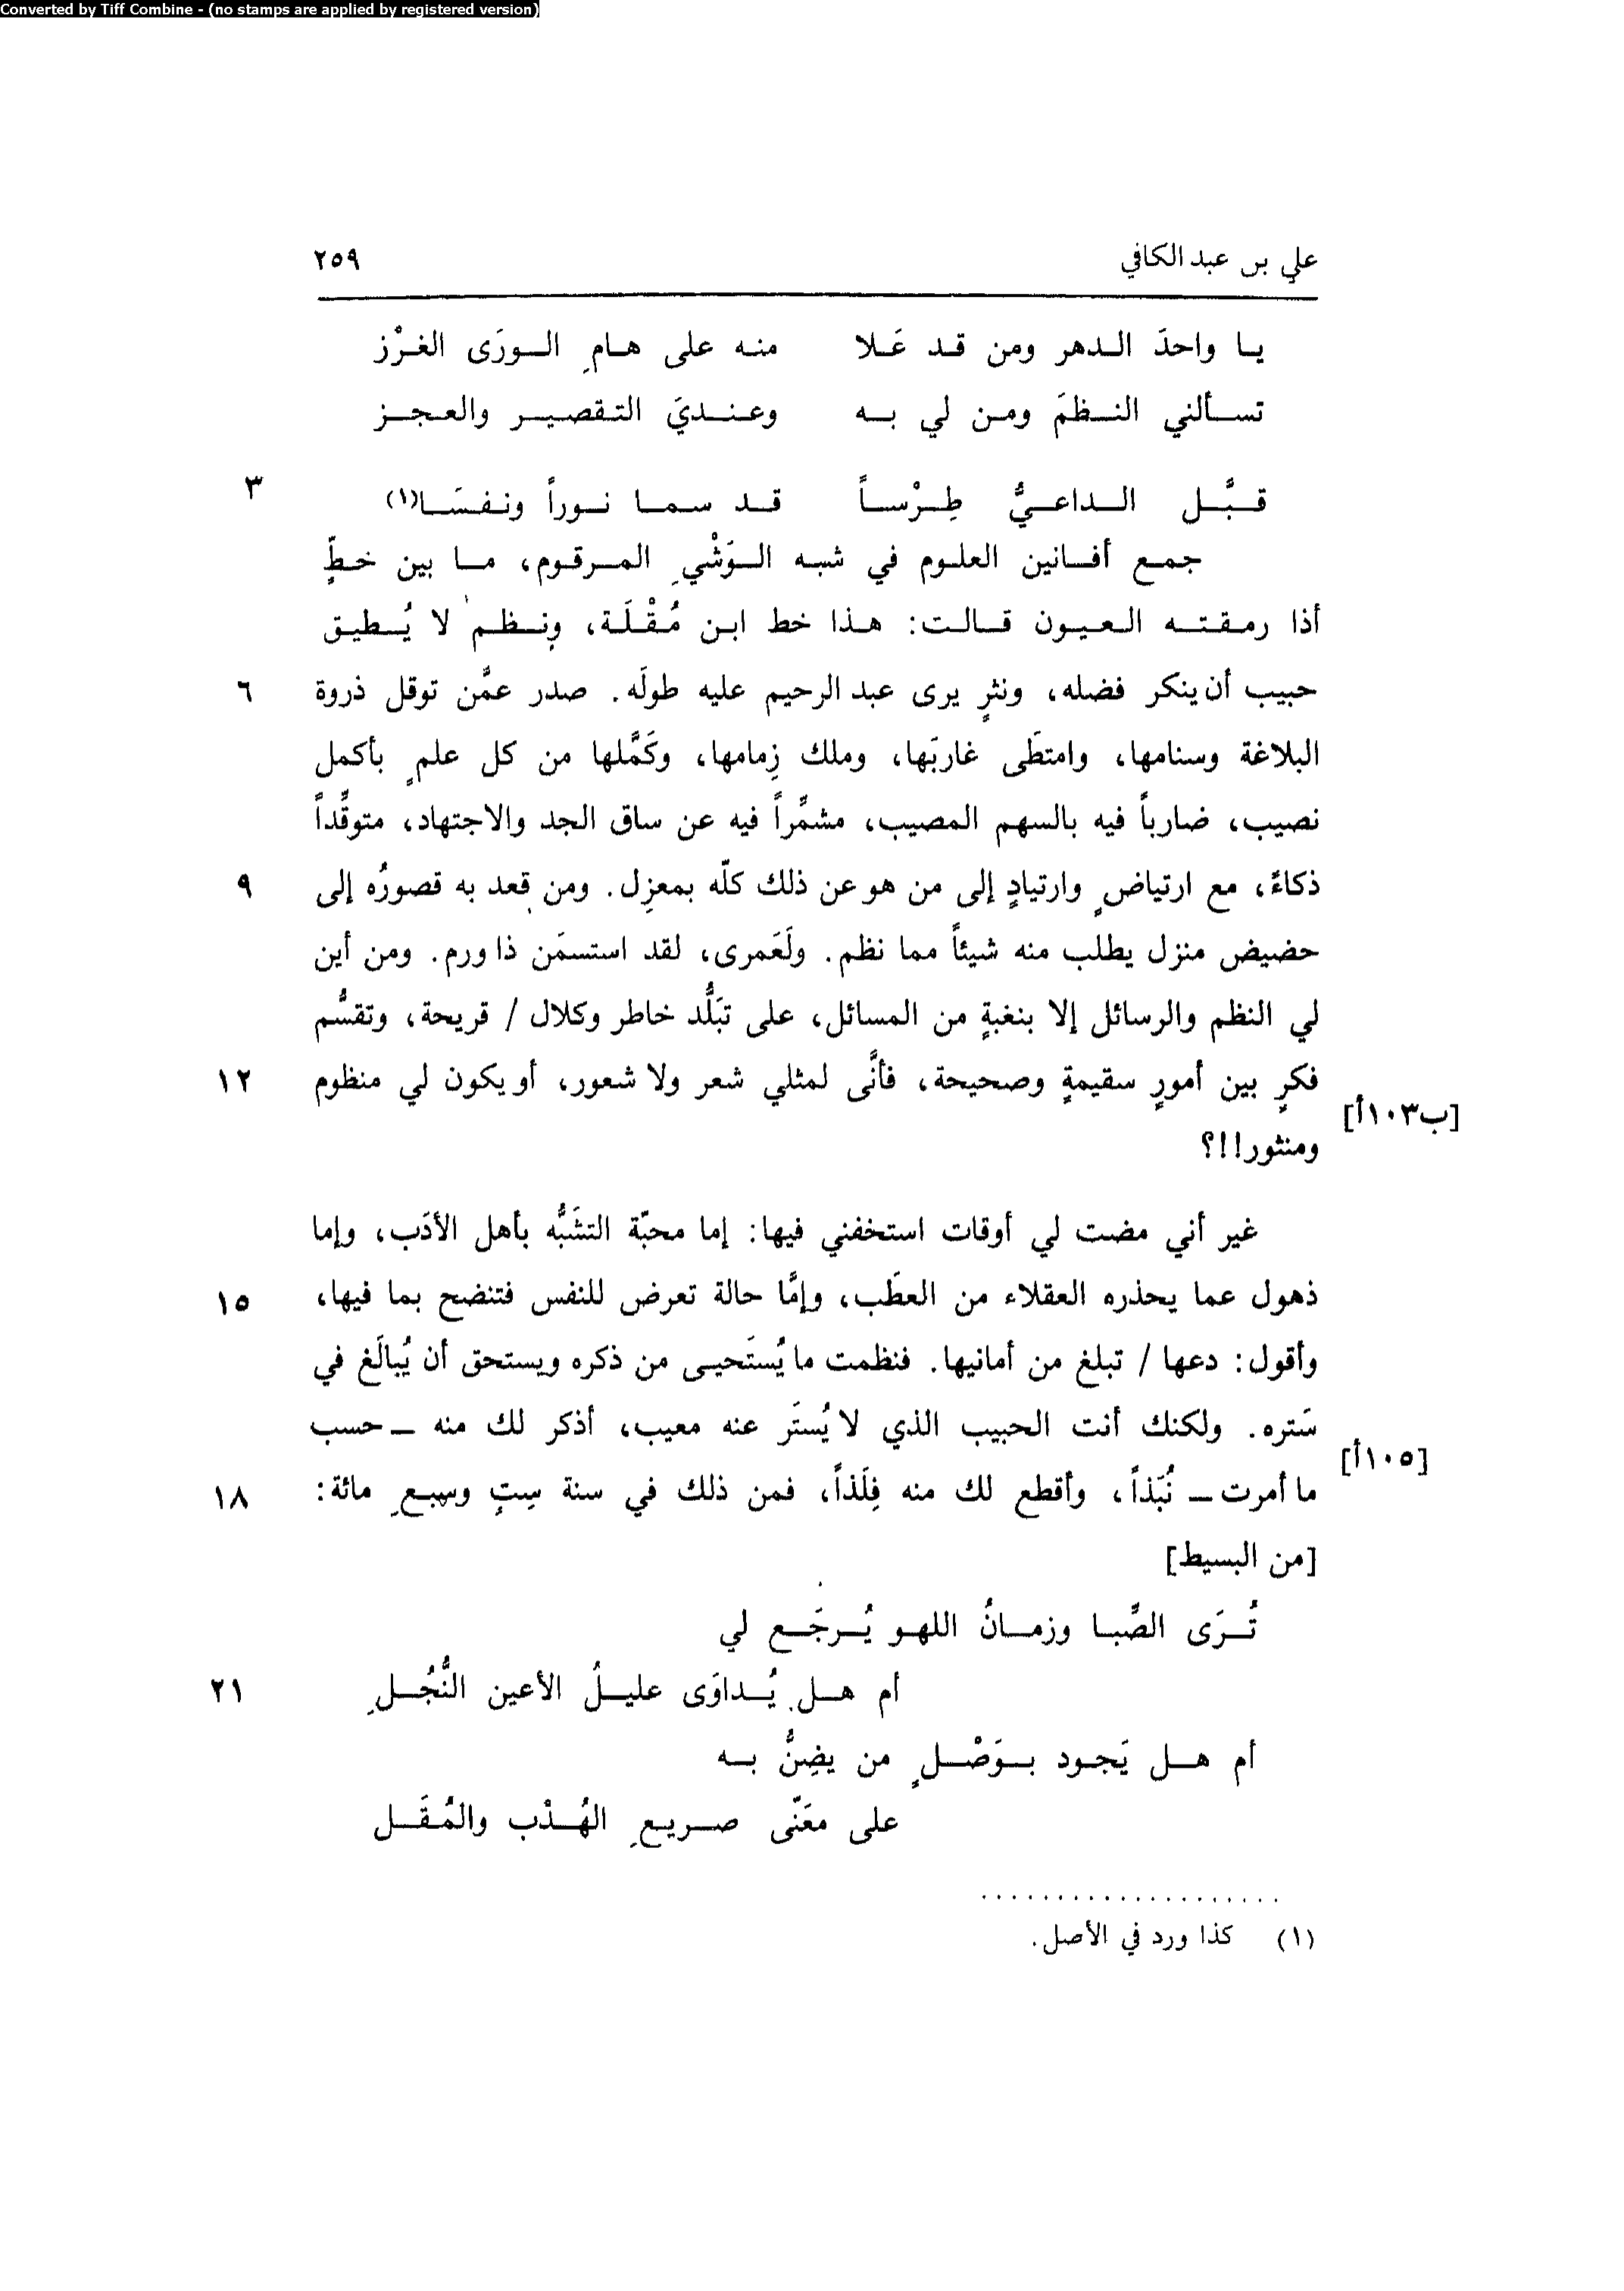 Converted by Tiff Combine - (no stamps are applied by registered version)
علي بن عبد الكافي ٢٥٩
يـا واحدَ الـدهر ومن قـد عَـلا منـه على هـامِ الـورَى الغـرْز
تسـألني النـظمَ ومـن لي بـه وعـنـديَ التـقصيـر والعـجـز
قـبَّـل الـداعـيُّ طِـرْسـاً قـد سـمـا نـوراً ونـفـسَـا(١) ٣
جمـع أفـانين العلـوم في شبـه الـوَشْيِ المـرقـوم، مـا بين خـطٍّ
أذا رمـقـتـه العـيـون قـالـت: هـذا خط ابـن مُـقْـلَـة، ونـظـم لا يُـطيـق
حبيب أن ينكر فضله، ونثرٍ يرى عبد الرحيم عليه طولَه. صدر عمَّن توقل ذروة ٦
البلاغة وسنامها، وامتطَى غاربَها، وملك زِمامها، وكَمَّلها من كل علمٍ بأكمل
نصيب، ضارباً فيه بالسهم المصيب، مشمِّراً فيه عن ساق الجد والاجتهاد، متوقِّداً
ذكاءً، مع ارتياضٍ وارتيادٍ إلى من هو عن ذلك كلّه بمعزِل. ومن قعد به قصورُه إلى ٩
حضيض منزل يطلب منه شيئاً مما نظم. ولَعَمرى، لقد استسمَن ذا ورم. ومن أين
لي النظم والرسائل إلا بنغبةٍ من المسائل، على تبَلُّد خاطر وكلال / قريحة، وتقسُّم
فكرٍ بين أمورٍ سقيمةٍ وصحيحة، فأنَّى لمثلي شعر ولا شعور، أو يكون لي منظوم ١٢
[ب١٠٣أ]
ومنثور!!؟
غير أني مضت لي أوقات استخفني فيها: إما محبّة التشَبُّه بأهل الأدَب، وإما
ذهول عما يحذره العقلاء من العطَب، وإمَّا حالة تعرض للنفس فتنضح بما فيها، ١٥
وأقول: دعها / تبلغ من أمانيها. فنظمت ما يُستَحيى من ذكره ويستحق أن يُبالَغ في
سَتره. ولكنك أنت الحبيب الذي لا يُستَر عنه معيب، أذكر لك منه ــ حسب
[١٠٥أ]
ما أمرت ــ نُبَذاً، وأقطع لك منه فِلَذاً، فمن ذلك في سنة سِتٍ وسبعِ مائة: ١٨
[من البسيط]
تُـرَى الصِّبـا وزمـانُ اللهـو يُـرجَـع لي
أم هـل يُـداوَى عليـلُ الأعين النُّجُـلِ ٢١
أم هـل يَجـود بـوَصْـلٍ من يضِنُّ بـه
على معَنّى صـريـعِ الهُـدْب والمُـقَـل
(١) كذا ورد في الأصل.